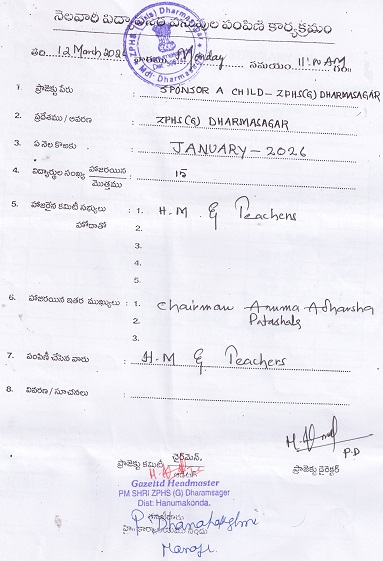 నెలవారీ విద్యార్థుల వస్తువుల పంపిణీ కార్యక్రమం
ZPHS (G) Dharmasagar
Mdl: Dharmasagar
తేది 12 March 2026 వారము Monday సమయం. 11:00 AM గం॥
1. ప్రాజెక్టు పేరు : SPONSOR A CHILD - ZPHS(G) DHARMASAGAR
2. ప్రదేశము / ఆవరణ : ZPHS(G) DHARMASAGAR
3. ఏ నెల కొఱకు : JANUARY - 2026
4. విద్యార్థుల సంఖ్య హాజరయిన / మొత్తము : 15
5. హాజరైన కమిటీ సభ్యులు : 1. H.M. & Teachers
హోదాతో 2.
3.
4.
5.
6. హాజరయిన ఇతర ముఖ్యులు : 1. Chairman Amma Adharsha
2. Patashala
3.
7. పంపిణీ చేసిన వారు : H.M & Teachers
8. వివరణ / సూచనలు :
ఛైర్మెన్.
ప్రాజెక్టు కమిటీ
P.D
ప్రాజెక్టు డైరెక్టర్
Gazettd Hendmaster
PM SHRI ZPHS (G) Dharamsager
Dist: Hanumakonda.
P. Dhanalakshmi